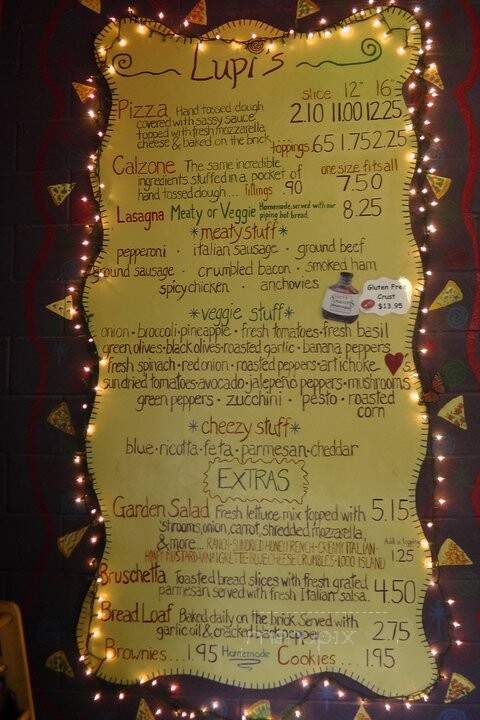 Lupi's
slice 12" 16"
Pizza Hand tossed dough 2.10 11.00 12.25
covered with sassy sauce
topped with fresh mozzarella
cheese & baked on the brick toppings .65 1.75 2.25
Calzone The same incredible one size fits all
ingredients stuffed in a pocket of 7.50
hand tossed dough... fillings .90
Lasagna Meaty or Veggie Homemade, served with our 8.25
piping hot bread
*meaty stuff*
pepperoni · italian sausage · ground beef
ground sausage · crumbled bacon · smoked ham
spicy chicken · anchovies
Gluten Free
Crust
$13.95
*veggie stuff*
onion · broccoli · pineapple · fresh tomatoes · fresh basil
green olives · black olives · roasted garlic · banana peppers
fresh spinach · red onion · roasted peppers · artichoke ♥s
sun dried tomatoes · avocado · jalepeño peppers · mushrooms
green peppers · zucchini · pesto · roasted
corn
*cheezy stuff*
blue · ricotta · feta · parmesan · cheddar
EXTRAS
Garden Salad Fresh lettuce mix topped with 5.15
'shrooms, onion, carrot, shredded mozzarella
& more... RANCH · SUNDRIED HONEY FRENCH · CREAMY ITALIAN Add a topping
HONEY MUSTARD · VINAIGRETTE · BLUE CHEESE CRUMBLES · 1,000 ISLAND 1.25
Bruschetta Toasted bread slices with fresh grated
parmesan served with fresh Italian salsa. 4.50
Bread Loaf Baked daily on the brick. Served with
garlic oil & cracked black pepper 2.75
Brownies... 1.95 Homemade Cookies... 1.95